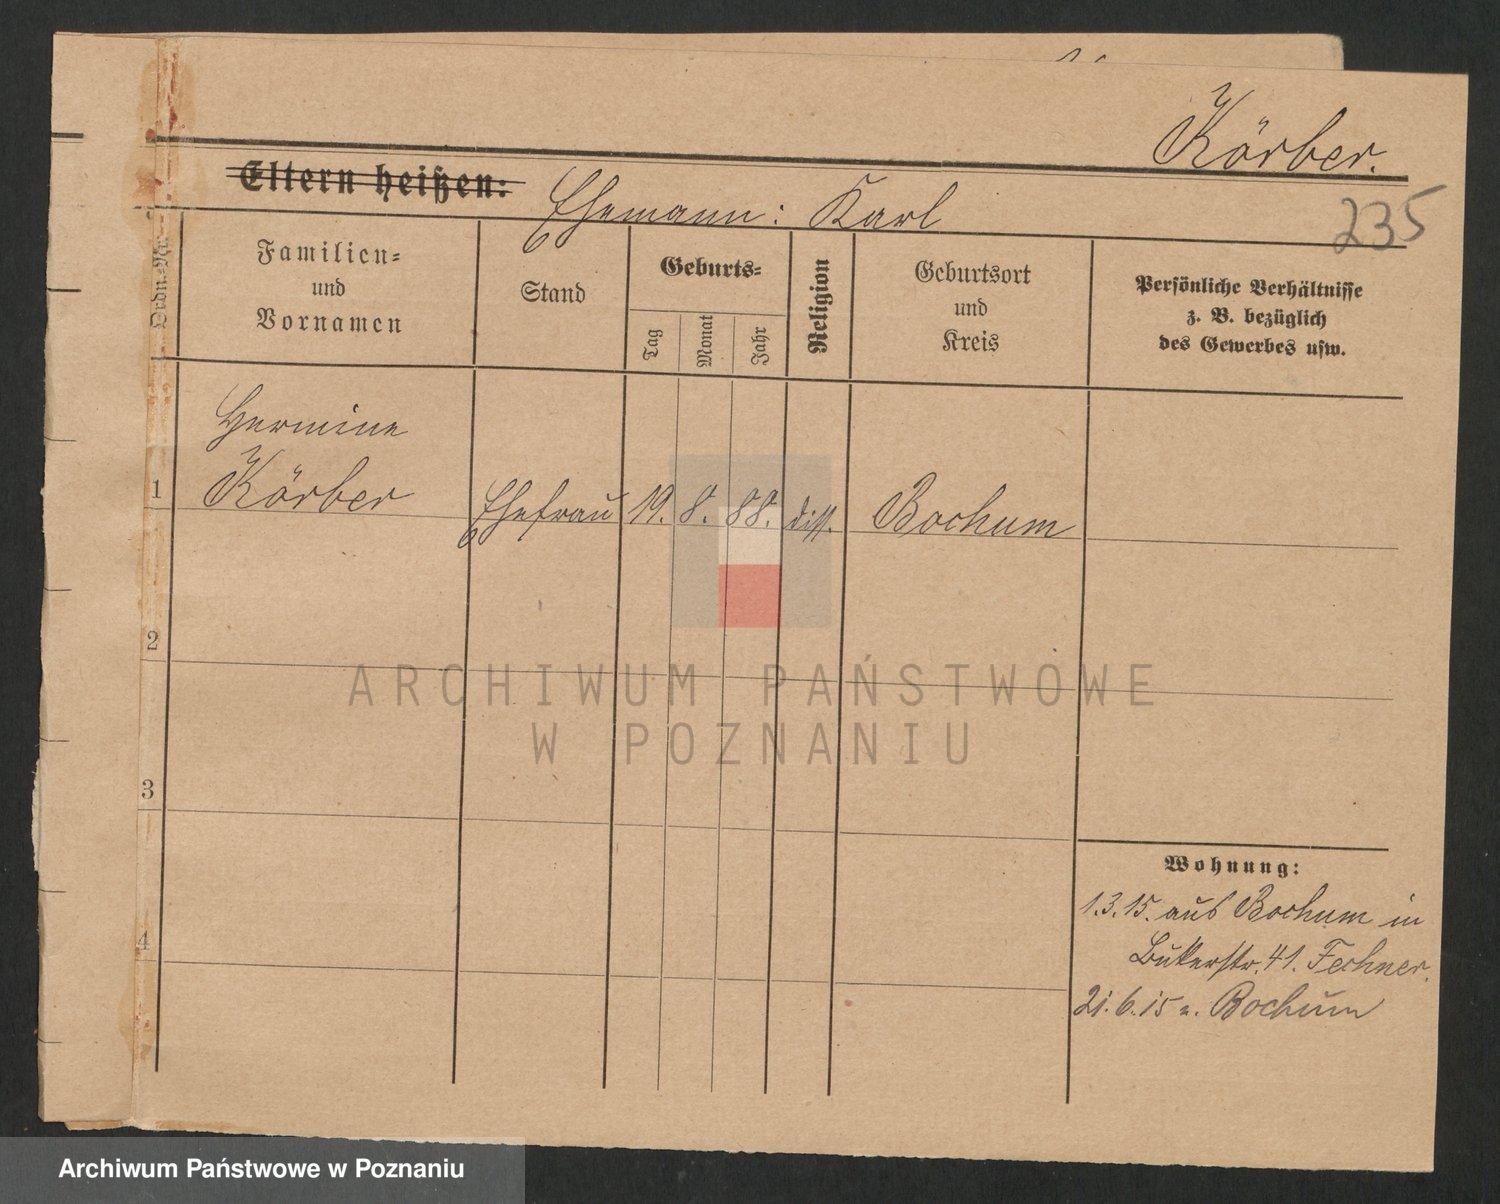 Körber.
Eltern heißen: Ehemann: Karl
235
Ordn.-Nr.
Familien-
und
Vornamen
Stand
Geburts-
Tag
Monat
Jahr
Religion
Geburtsort
und
Kreis
Persönliche Verhältnisse
z. B. bezüglich
des Gewerbes usw.
Hermine
1 Körber Ehefrau 19. 8. 88. diss. Bochum
2
3
4
Wohnung:
1.3.15. aus Bochum in
Bukerstr. 41. Fechner.
21.6.15 n. Bochum
ARCHIWUM PAŃSTWOWE
W POZNANIU
Archiwum Państwowe w Poznaniu